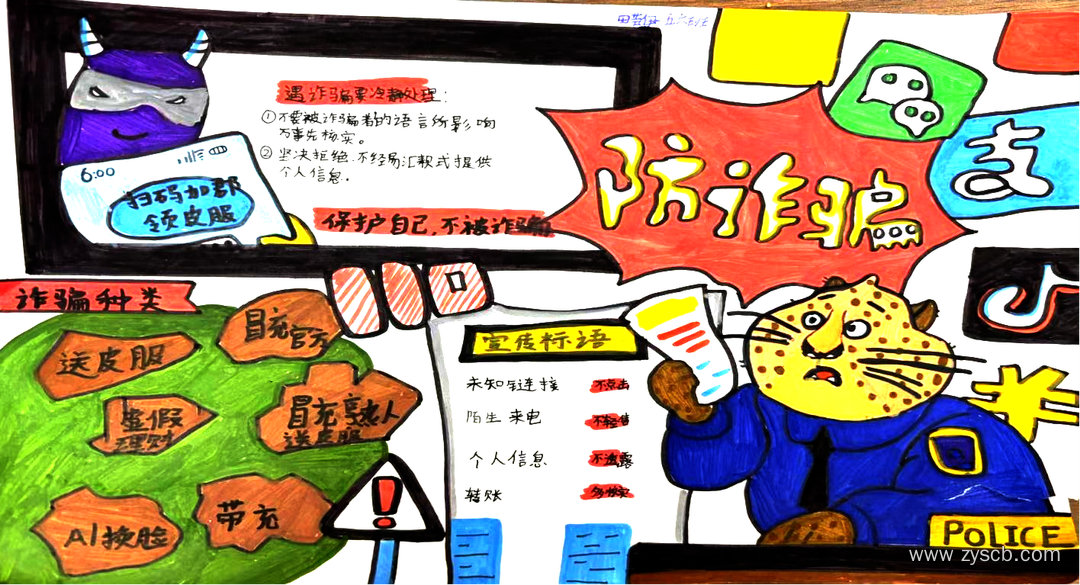 遇诈骗要冷静处理:
①不要被诈骗者的语言所影响
万事先核实。
②坚决拒绝,不轻易汇款或提供
个人信息。
保护自己,不被诈骗
6:00
扫码加群
领皮服
防诈骗
支
诈骗种类
冒充官方
送皮服
虚假
理财
冒充熟人
送皮服
AI换脸
带充
宣传标语
未知链接 不点击
陌生来电 不轻信
个人信息 不透露
转账 多核实
POLICE
www.zyscb.com